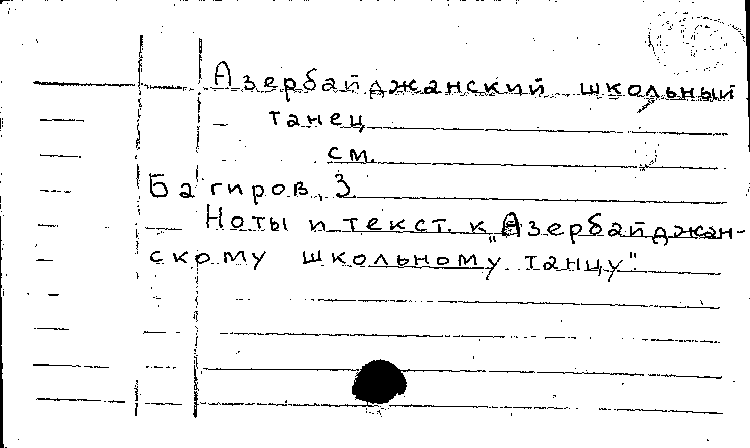 Азербайджанский школьный
танец
см.
Багиров, З
Ноты и текст. к "Азербайджан-
скому школьному танцу".